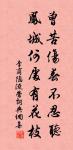 曾苦傷春不忍聽
鳳城何處有花枝
李商隱流鶯詞典網